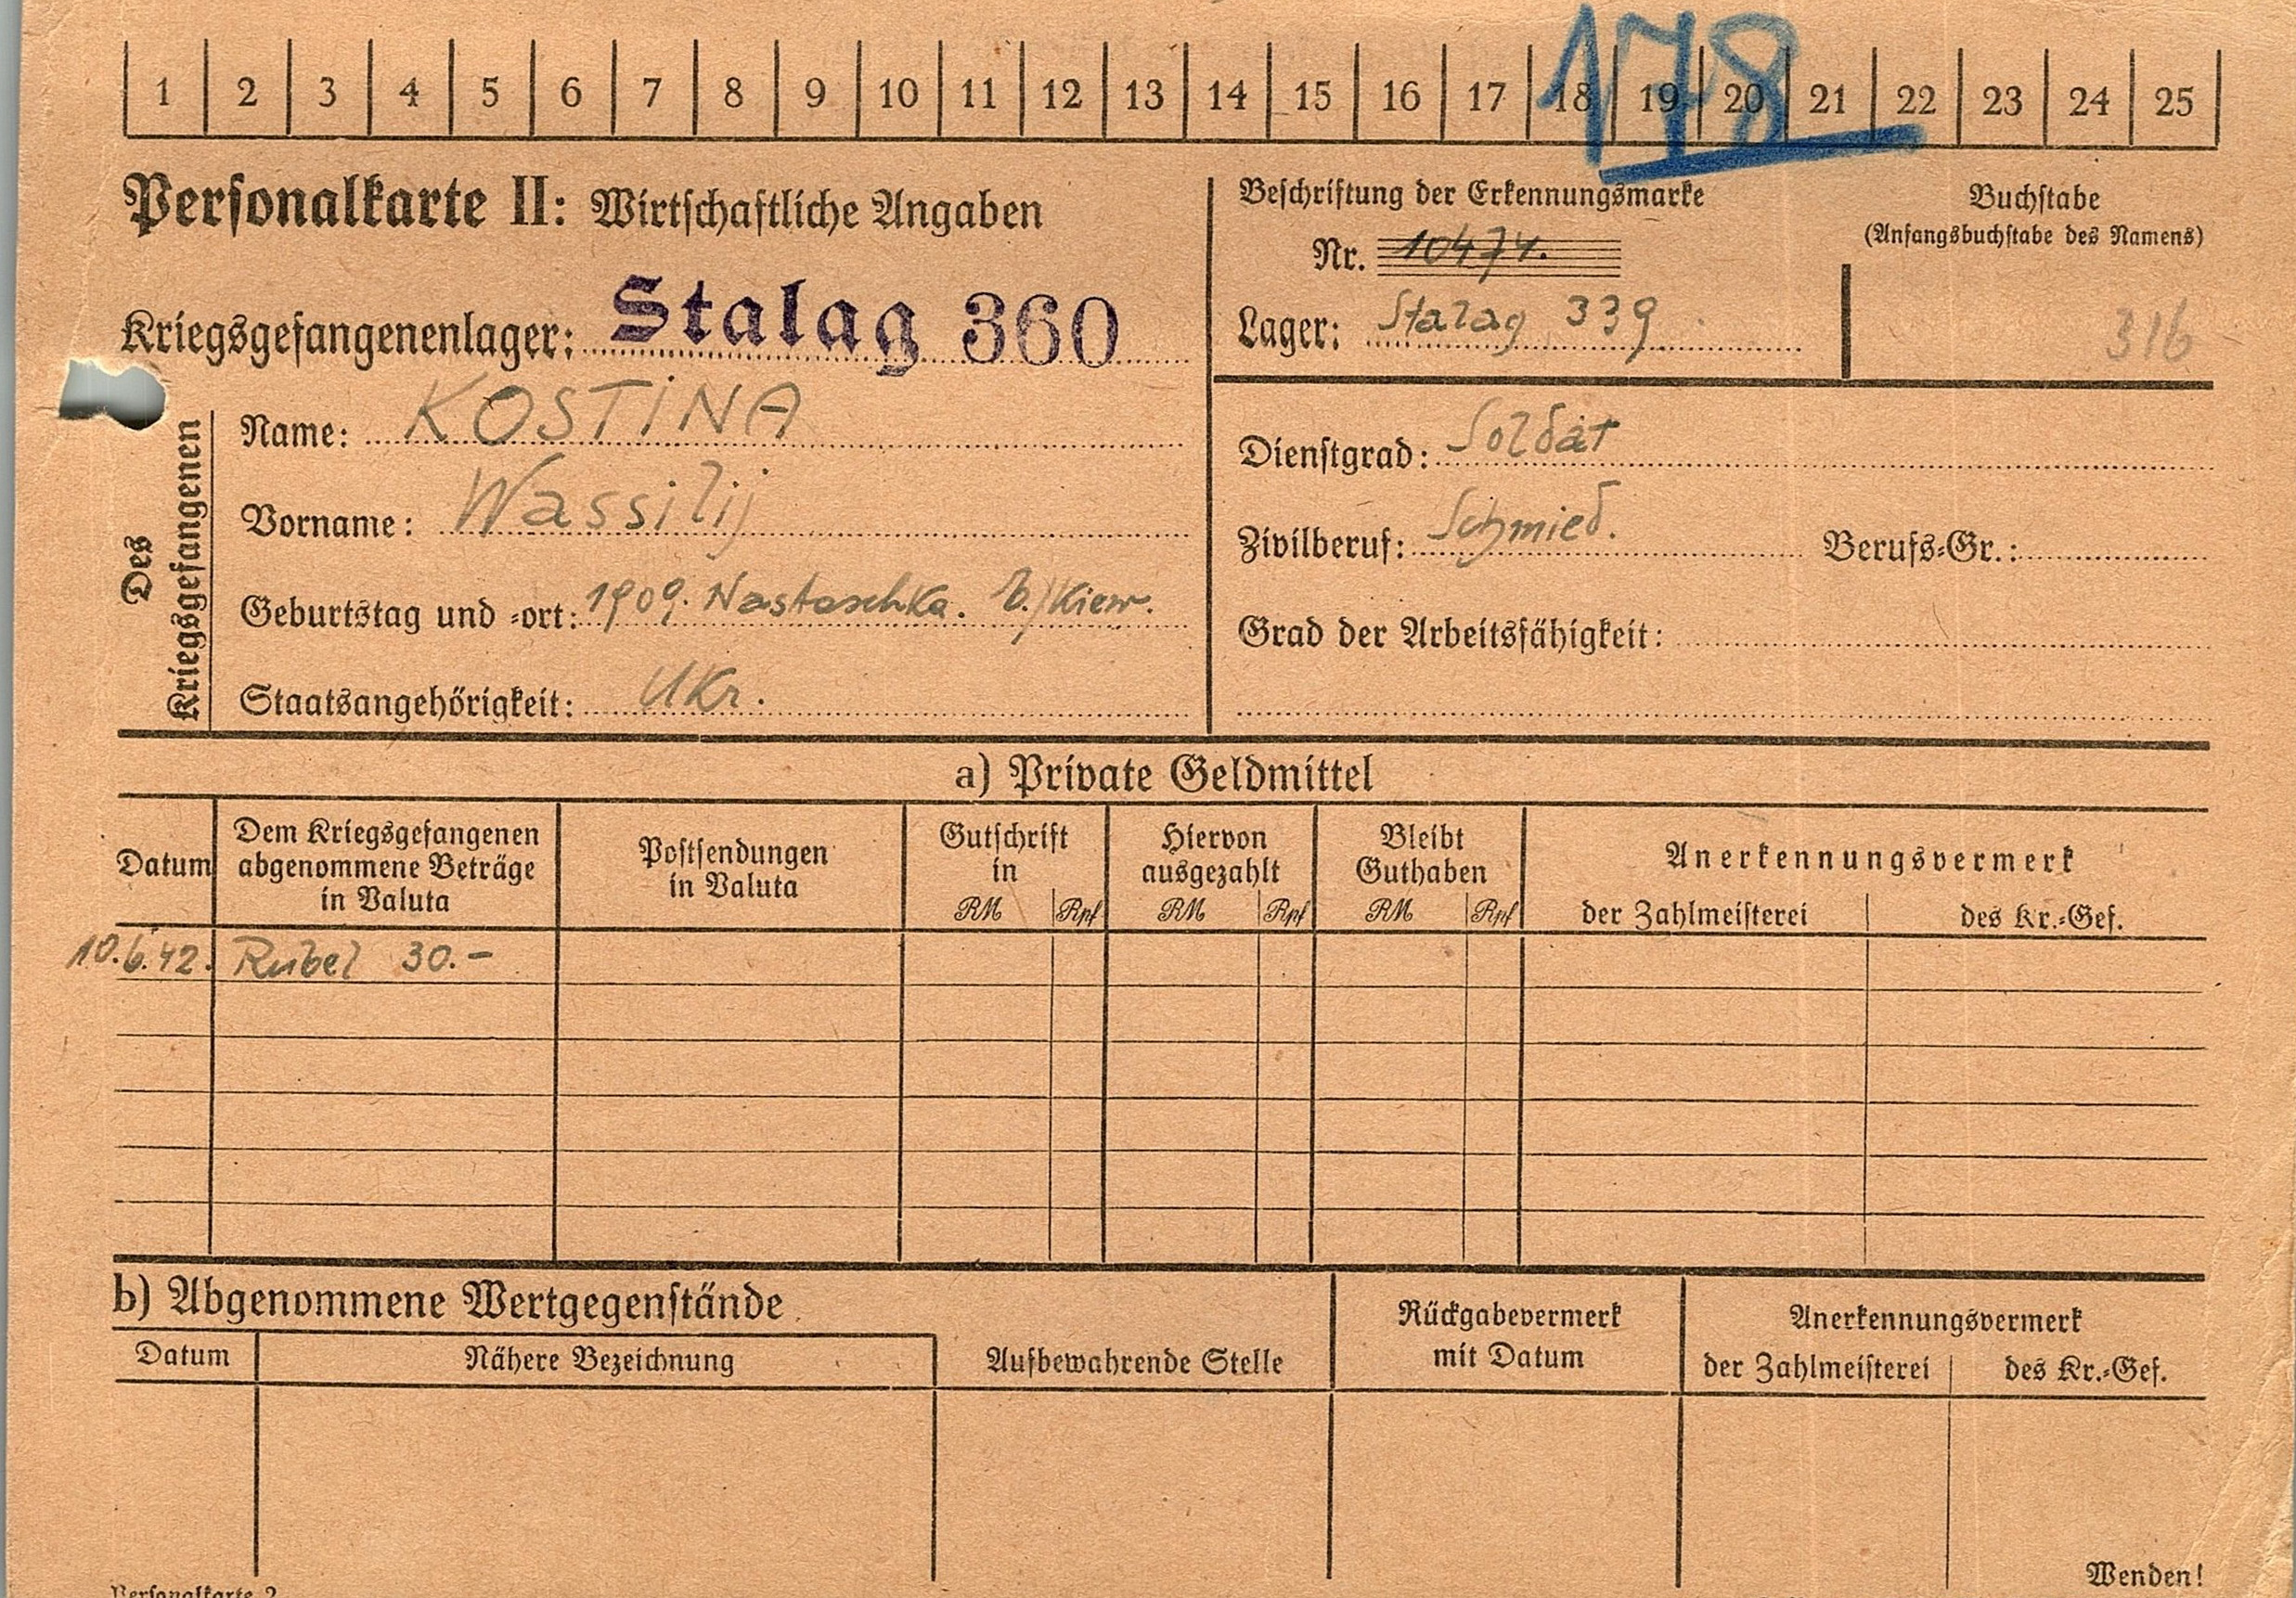 178
1 2 3 4 5 6 7 8 9 10 11 12 13 14 15 16 17 18 19 20 21 22 23 24 25
Personalkarte II: Wirtschaftliche Angaben
Kriegsgefangenenlager: Stalag 360
Beschriftung der Erkennungsmarke
Nr. 10474.
Lager: Stalag 339
Buchstabe
(Anfangsbuchstabe des Namens)
316
Des Kriegsgefangenen
Name: KOSTINA
Vorname: Wassilij
Geburtstag und -ort: 1909. Nastaschka. b./Kiew.
Staatsangehörigkeit: Ukr.
Dienstgrad: Soldat
Zivilberuf: Schmied. Berufs-Gr.:
Grad der Arbeitsfähigkeit:
a) Private Geldmittel
Datum
Dem Kriegsgefangenen
abgenommene Beträge
in Valuta
Postsendungen
in Valuta
Gutschrift
in
RM Rpf
Hiervon
ausgezahlt
RM Rpf
Bleibt
Guthaben
RM Rpf
Anerkennungsvermerk
der Zahlmeisterei des Kr.-Gef.
10.6.42. Rubel 30.-
b) Abgenommene Wertgegenstände
Datum Nähere Bezeichnung
Aufbewahrende Stelle
Rückgabevermerk
mit Datum
Anerkennungsvermerk
der Zahlmeisterei des Kr.-Gef.
Wenden!
Personalkarte 2